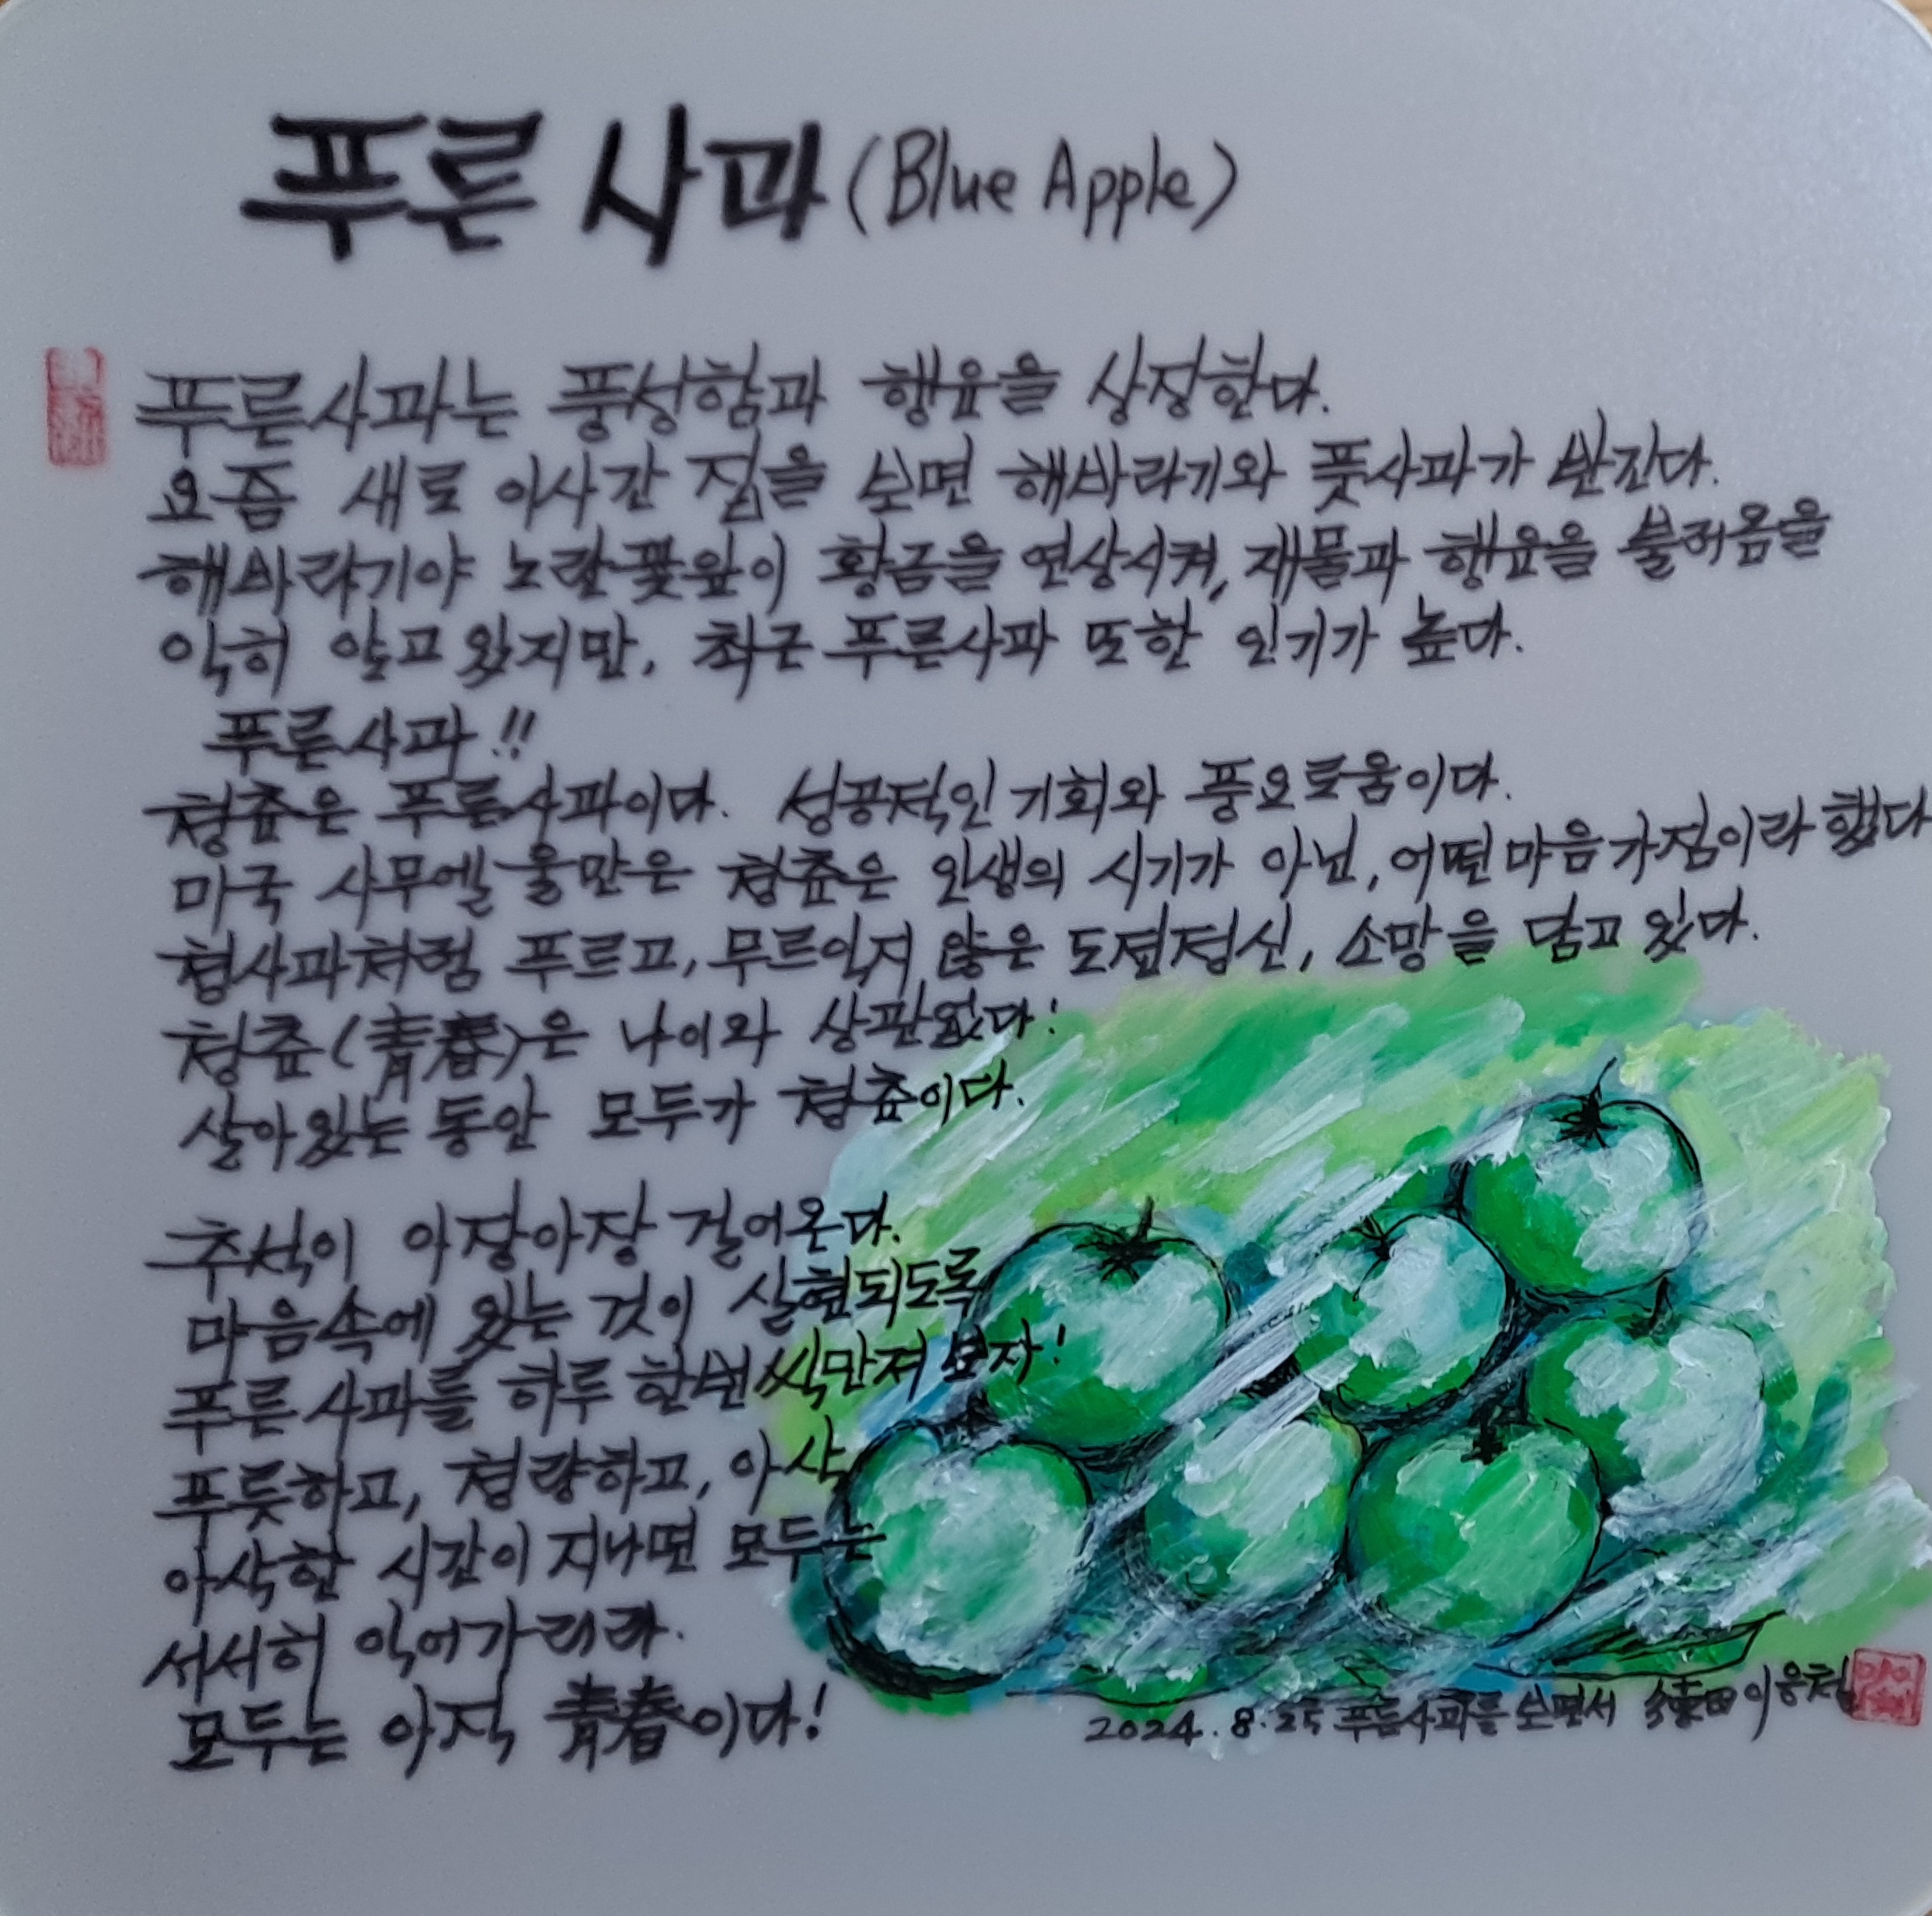 푸른 사과 (Blue Apple)
푸른사과는 풍성함과 행운을 상징한다.
요즘 새로 이사간 집을 보면 해바라기와 풋사과가 반긴다.
해바라기야 노란꽃잎이 황금을 연상시켜, 재물과 행운을 불러옴을
익히 알고 있지만, 최근 푸른사과 또한 인기가 높다.
푸른사과!!
청춘은 푸른사과이다. 성공적인 기회와 풍요로움이다.
미국 사무엘 울만은 청춘은 인생의 시기가 아닌, 어떤 마음가짐이라 했다
청사과처럼 푸르고, 무르익지 않은 도전정신, 소망을 담고 있다.
청춘(靑春)은 나이와 상관없다!
살아있는 동안 모두가 청춘이다.
추석이 아장아장 걸어온다.
마음속에 있는 것이 실현되도록
푸른 사과를 하루 한번씩 만져 보자!
푸릇하고, 청량하고, 아삭
아삭한 시간이 지나면 모두는
서서히 익어가리라.
모두는 아직 靑春이다!
2024.8.25 푸른사과를 보면서 田 이응철